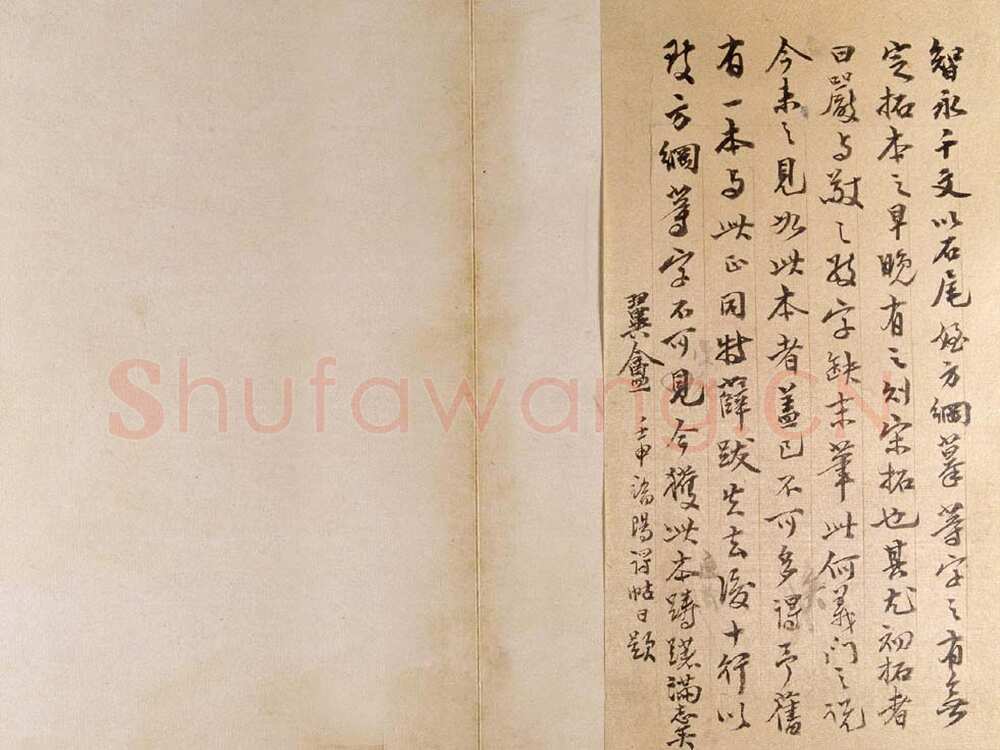 智永千文以石尾姪方綱摹等字之有無
定拓本之早晚有之则宋拓也其尤初拓者
曰嚴与敬之敬字缺末筆此何義门之说
今未之見如此本者蓋已不可多得予舊
有一本与此正同特薛跋失去後十行以
致方綱等字不可見今獲此本躊躇滿志矣
翼盦 壬申 陽得帖日題
Shufawang.CN